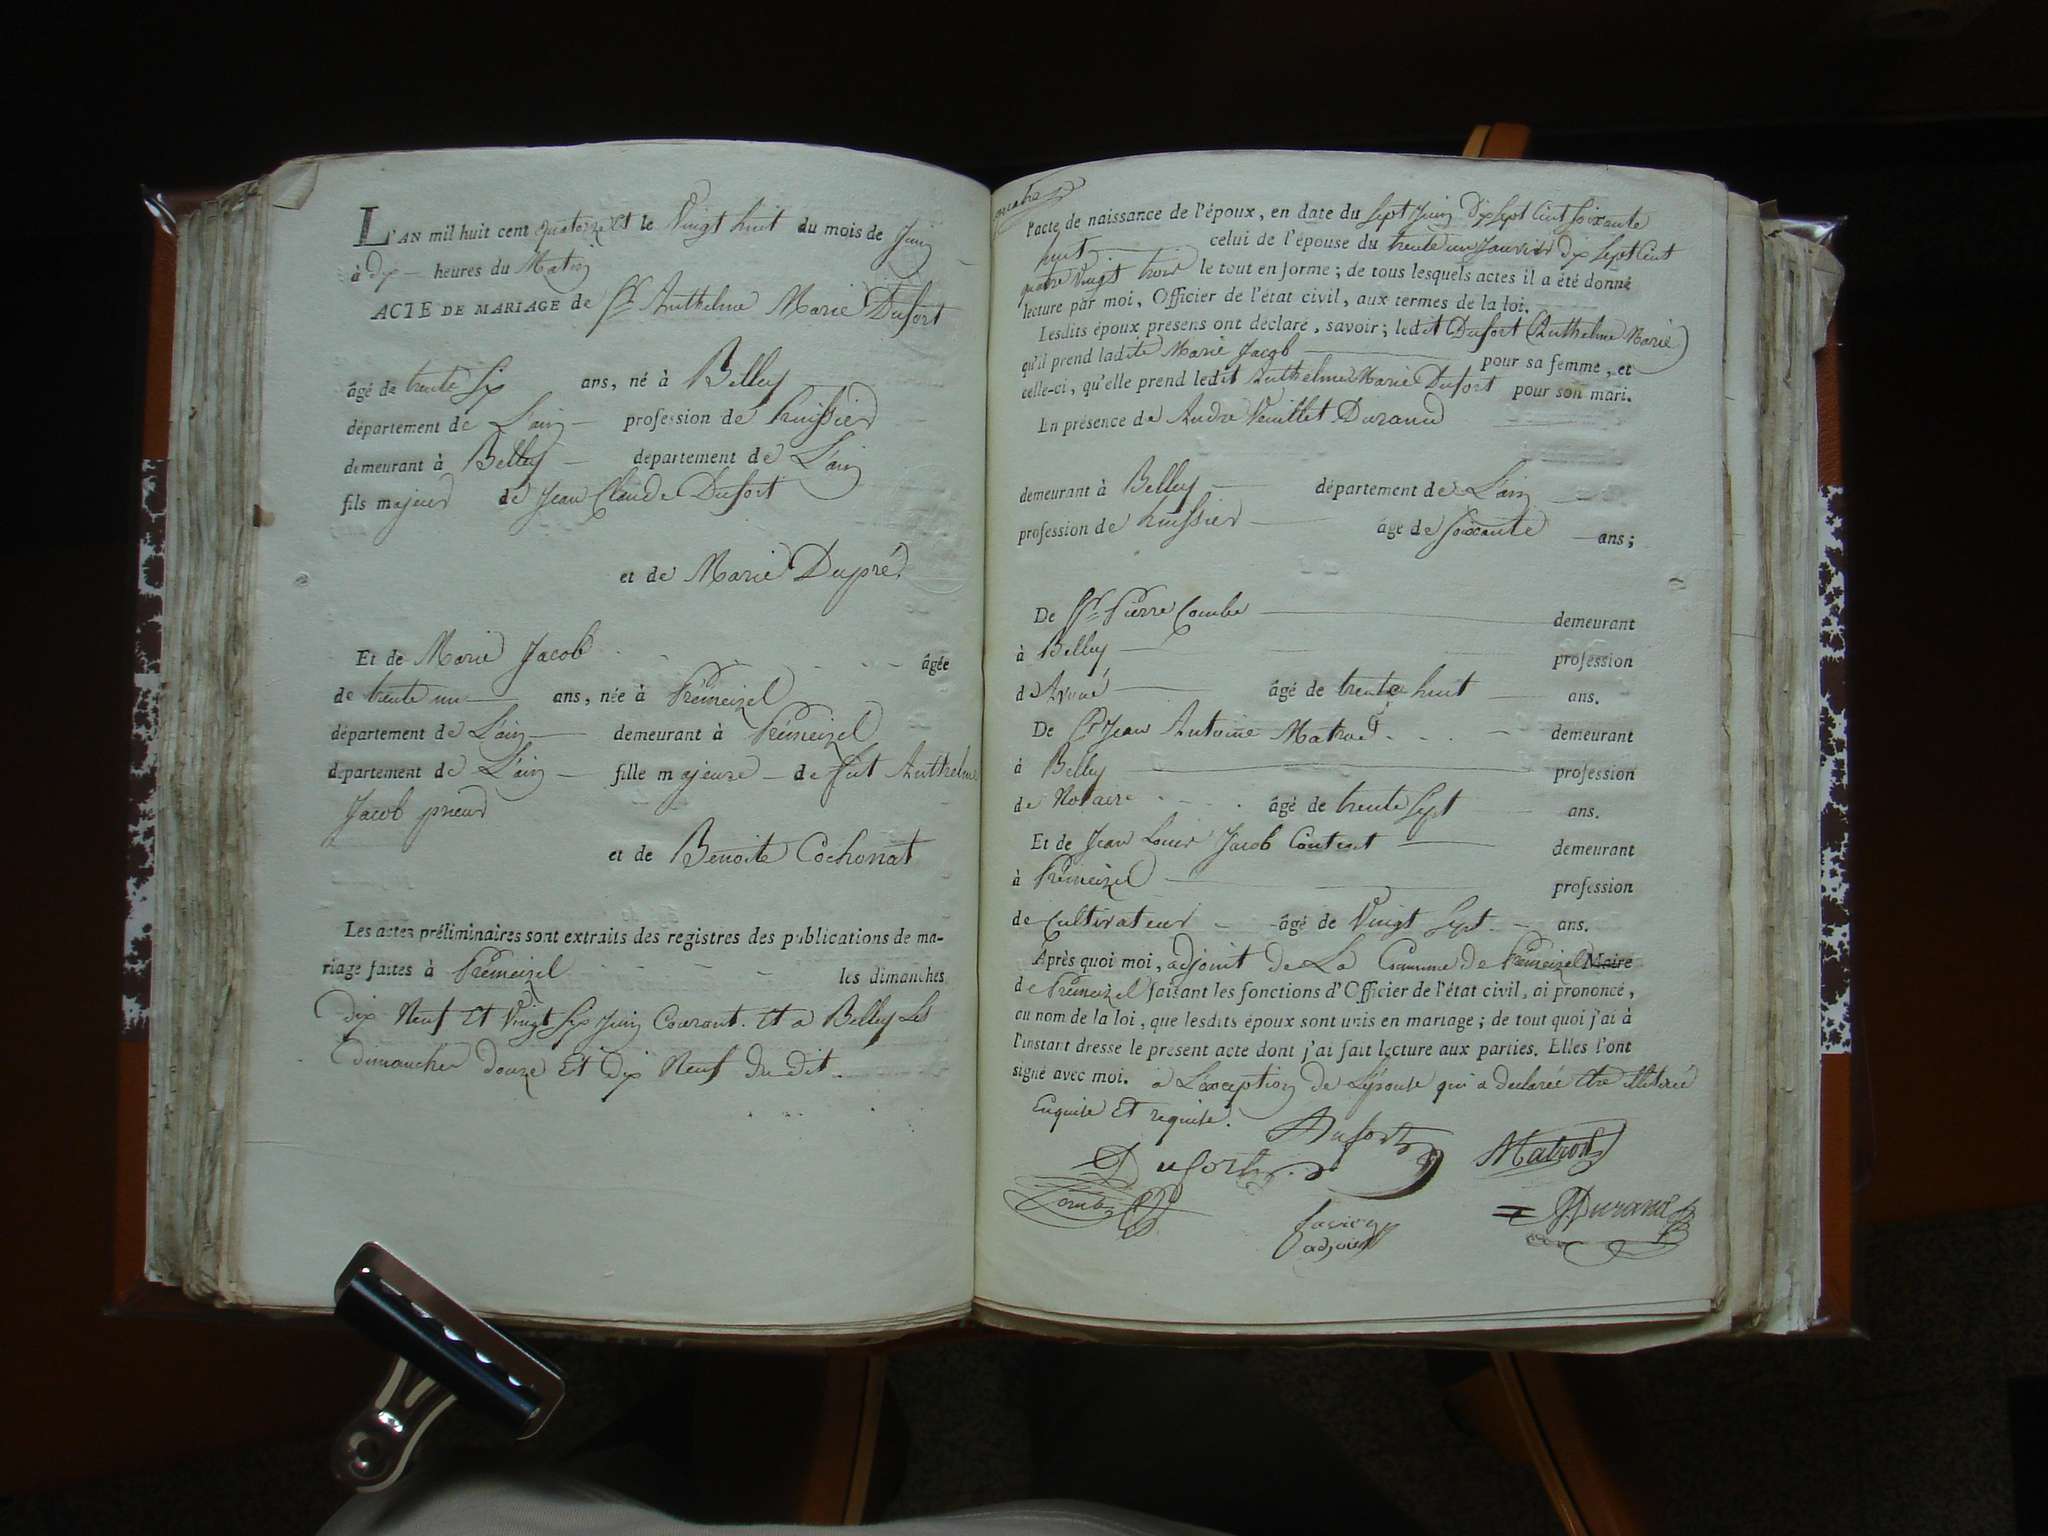 L'AN mil huit cent quatorze et le Vingt huit du mois de Juin
à dix heures du Matin
ACTE DE MARIAGE de Sr Anthelme Marie Dufort
âgé de trente six ans, né à Belley
département de L'ain profession de huissier
demeurant à Belley département de L'ain
fils majeur de Jean Claude Dufort
et de Marie Dupré
Et de Marie Jacob âgée
de trente un ans, née à Prémeizel
département de L'ain demeurant à Prémeizel
département de L'ain fille majeure de fut Anthelme
Jacob prieur
et de Benoite Cochonat
Les actes préliminaires sont extraits des registres des publications de ma-
riage faites à Prémeizel les dimanches
dix Neuf Et Vingt Six Juin Courant. Et a Belley Les
dimanches douze Et dix Neuf du dit.
quatre
l'acte de naissance de l'époux, en date du Sept Juin dix Sept Cent Soixante
huit celui de l'épouse du trente un Janvier dix Sept Cent
quatre Vingt trois le tout en forme; de tous lesquels actes il a été donné
lecture par moi, Officier de l'état civil, aux termes de la loi.
Lesdits époux présens ont déclaré, savoir; ledit Dufort (Anthelme Marie)
qu'il prend ladite Marie Jacob pour sa femme, et
celle-ci, qu'elle prend ledit Anthelme Marie Dufort pour son mari.
En présence de Andre Veuillet Durand
demeurant à Belley département de L'ain
profession de huissier âgé de Soixante ans;
De Sr Pierre Combe demeurant
à Belley profession
d'Avoué âgé de trente huit ans.
De Sr Jean Antoine Matrod demeurant
à Belley profession
de Notaire âgé de trente Sept ans.
Et de Jean Louis Jacob Content demeurant
à Prémeizel profession
de Cultivateur âgé de Vingt Sept ans.
Après quoi moi, adjoint de La Commune de Prémeizel Maire
de Prémeizel faisant les fonctions d'Officier de l'état civil, ai prononcé,
au nom de la loi, que lesdits époux sont unis en mariage; de tout quoi j'ai à
l'instant dressé le présent acte dont j'ai fait lecture aux parties. Elles l'ont
signé avec moi. a L'exception de L'épouse qui a declarée être illitérée
Enquise Et requise.
Dufort
Matrod
Dufort
Combe
Durand
adjoint